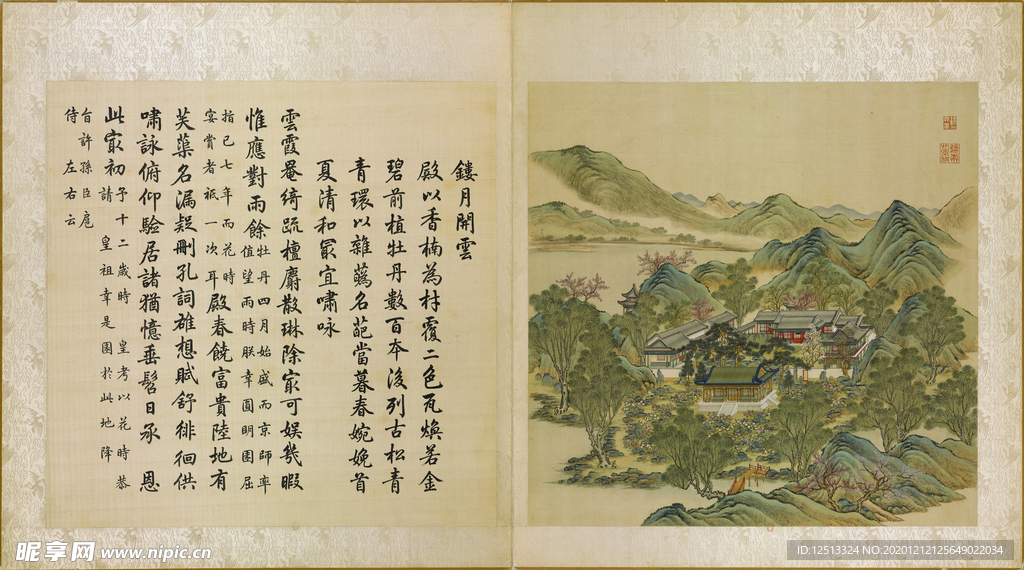 鏤月開雲
殿以香楠為材覆二色瓦煥若金
碧前植牡丹數百本後列古松青
青環以雜蘤名葩當暮春婉娩首
夏清和最宜嘯咏
雲霞罨綺疏檀麝散琳除最可娛幾暇
惟應對雨餘牡丹四月始盛而京師率值望雨時朕幸圓明園屈
指已七年而花時宴賞者祇一次耳殿春饒富貴陸地有
芙蕖名漏疑刪孔詞雄想賦舒徘徊供
嘯詠俯仰驗居諸猶憶垂髫日承 恩
此最初予十二歲時 皇考以花時恭請 皇祖幸是園於此地降
旨許孫臣扈侍 左右云
昵享网 www.nipic.cn
ID:12513324 NO:20201212125649022034